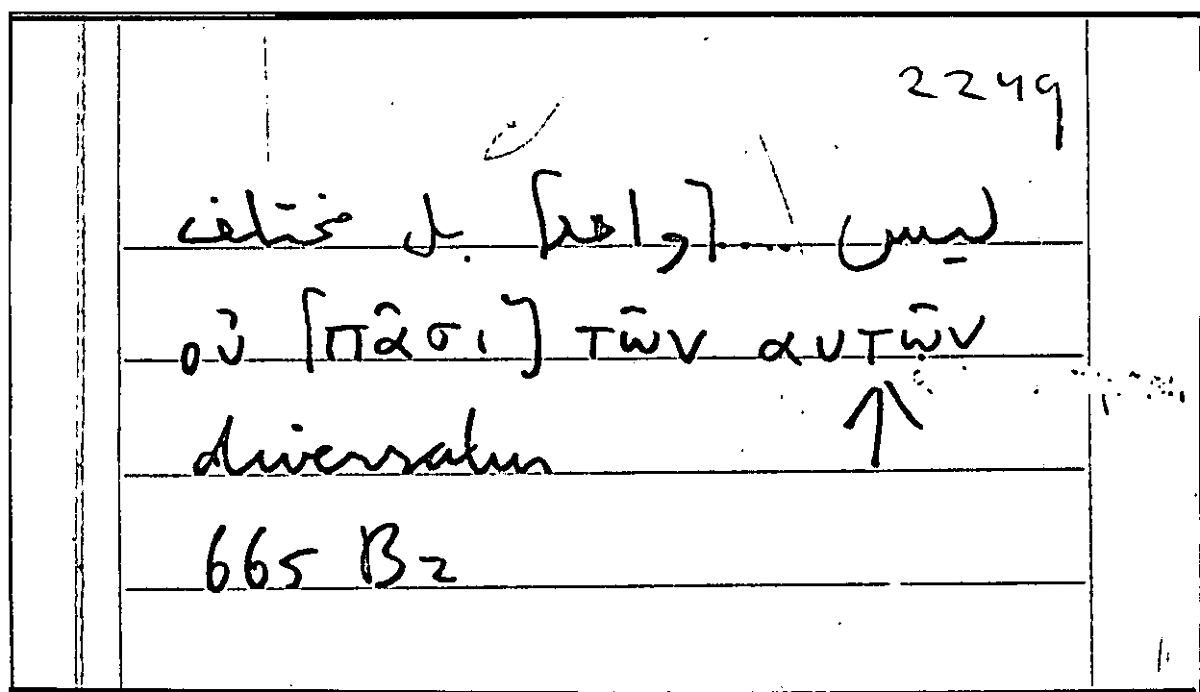 2249
ليس .....[واحدا] بل مختلف
οὐ [πᾶσι] τῶν αυτῶν
↑
diversatur
665 B2